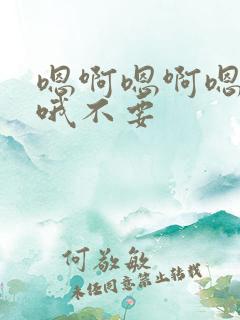 嗯啊嗯啊嗯
哦不要
何敬敏
未经同意禁止转载